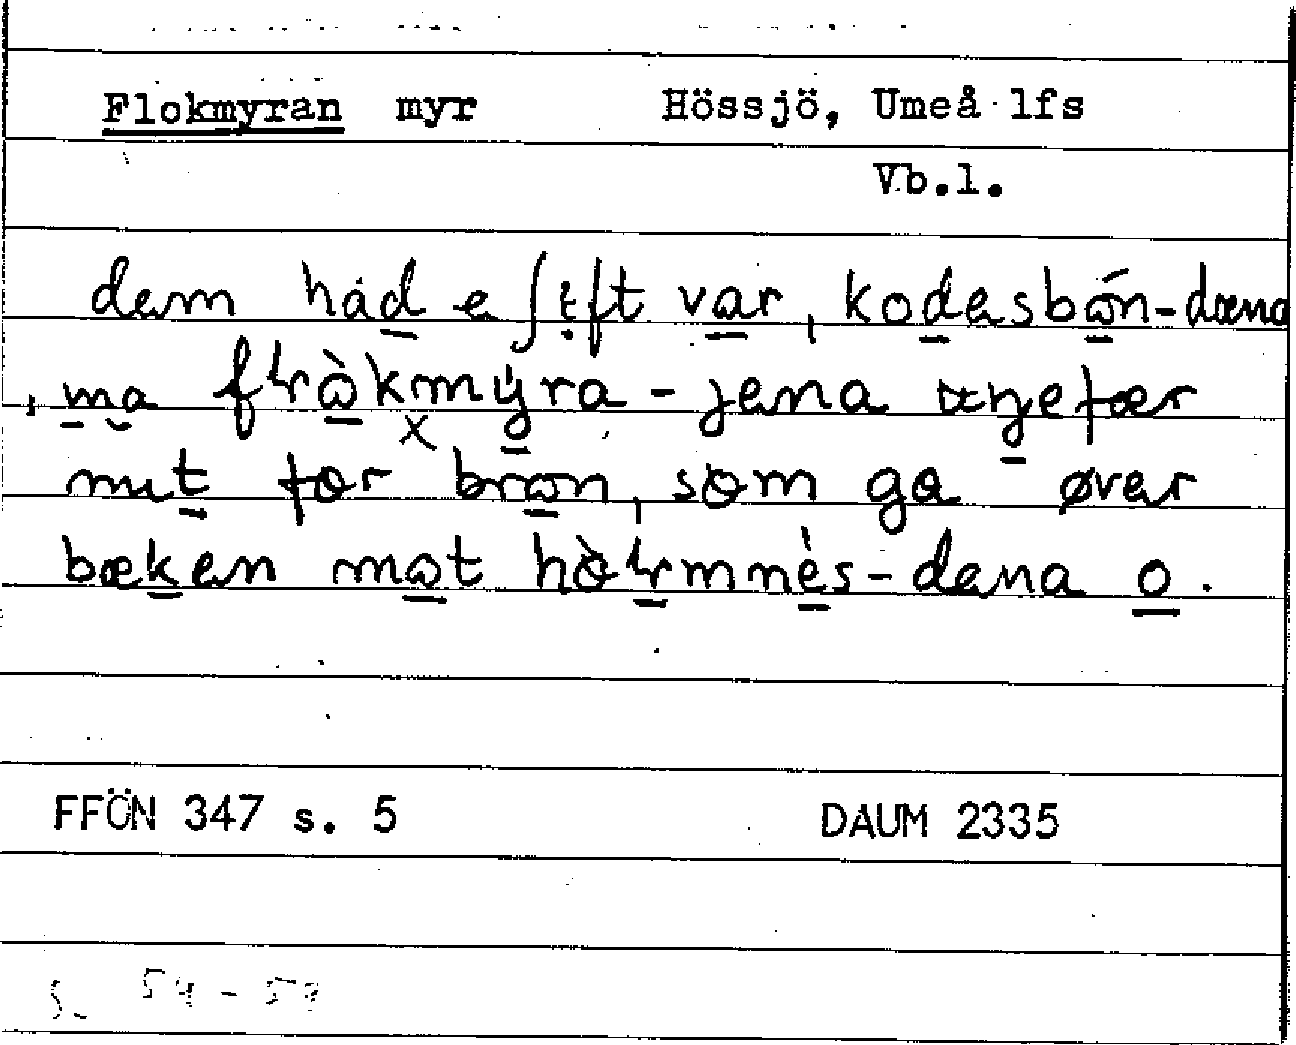 Flokmyran myr Hössjö, Umeå lfs
Vb.l.
dem håd e ʃɩft var, kodesbón-dæna
, ma fɽòkmẏra - jena ɯŋefær
mɩt før bron, som ga øver
bækæn mot hòɽmnès-dena o.
FFÖN 347 s. 5 DAUM 2335